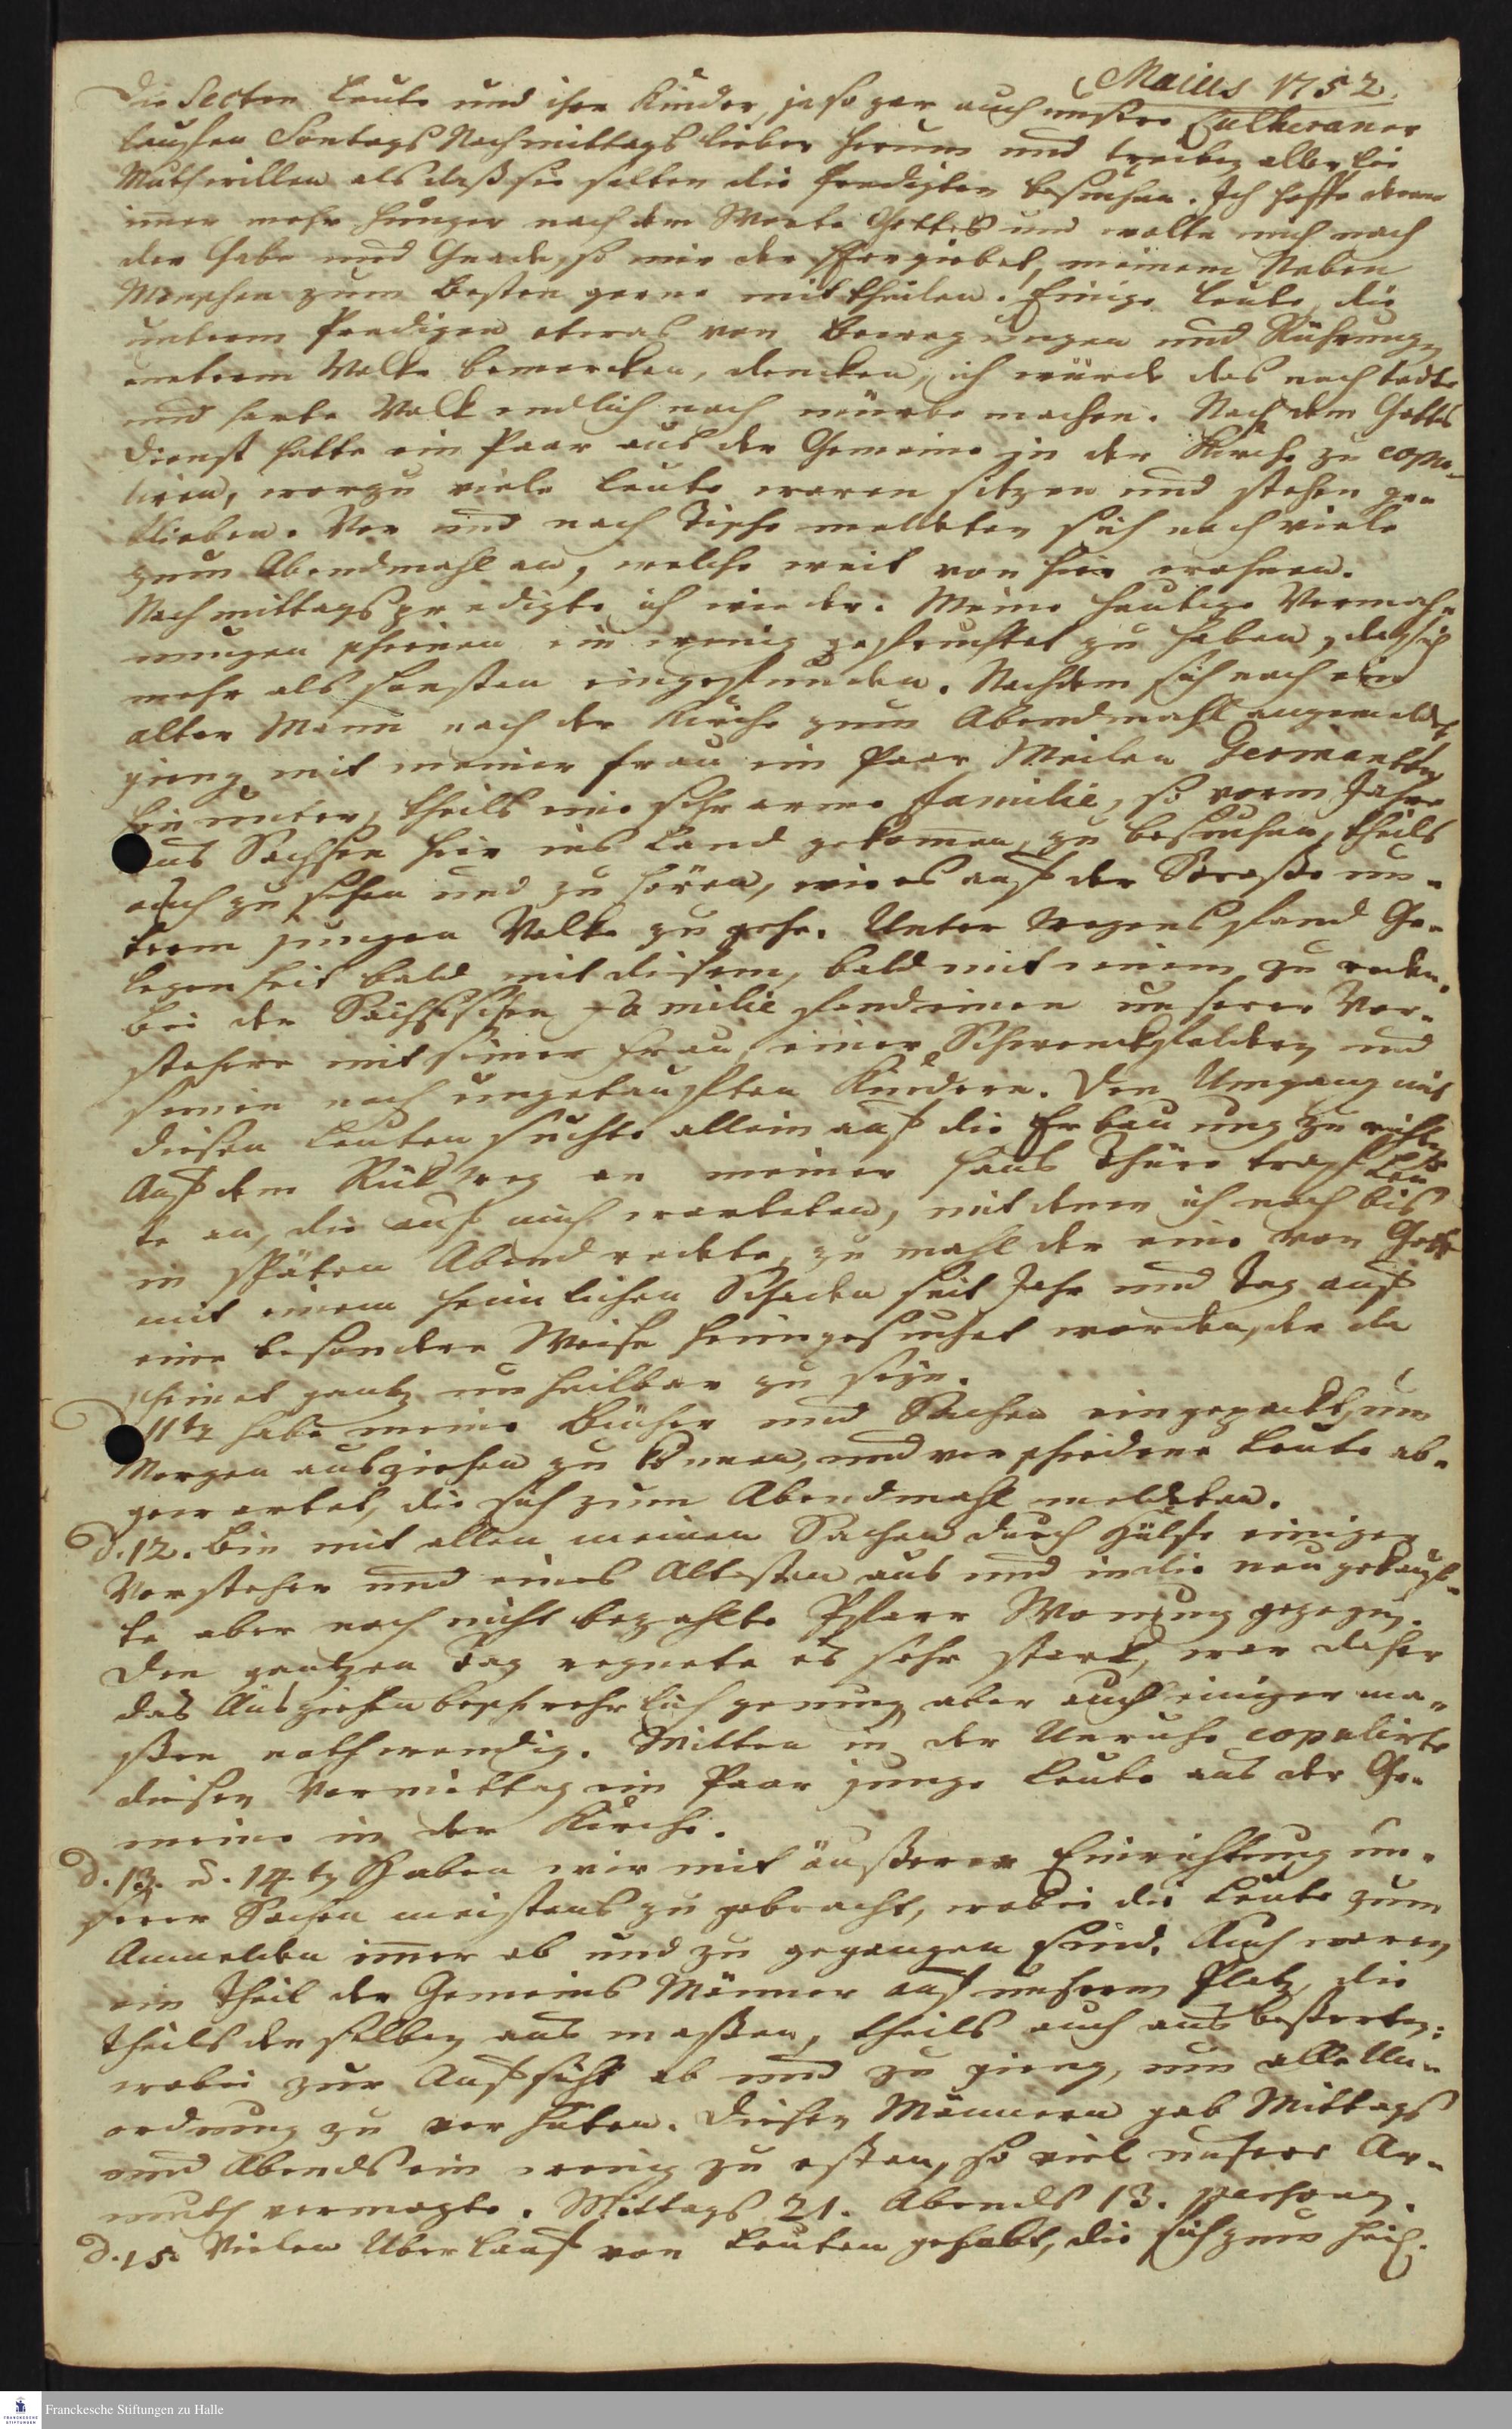 Maius 1752.
Die Secten Leute und ihre Kinder, ja so gar auch unsere Lutheraner
lauffen Sontags Nachmittags lieber herum und treiben allerlei
Muthwillen als daß sie solten die Predigten besuchen. Ich hoffe
immer mehr Hunger nach dem Worte Gottes und wolte mich nach
der Gabe und Gnade, so mir der Herr giebet, meinem Neben
Menschen zum Besten gerne mittheilen. Einige Leute, die
unterm Predigen etwas von Bewegungen und Rührungen
unterm Volke bemercken, dencken, ich würde das noch todte
und harte Volck endlich noch mürbe machen. Nach dem Gottes
dienst hatte ein Paar aus der Gemeine in der Kirche zu copu-
liren, worzu viele Leute waren sitzen und stehen ge-
blieben. Vor und nach Tische meldeten sich noch viele
zum Abendmahl an, welche weit von hier wohnen.
Nachmittags predigte ich wieder. Meine heutige Vermah-
nungen schienen ein wenig gefruchtet zu haben, da sich
mehr als sonsten eingefunden. Nachdem sich noch ein
alter Mann nach der Kirche zum Abendmahl angemeldet
gieng mit meiner Frau ein Paar Meilen Germanton
hinunter, theils eine sehr arme Familie, so vorm Jahre
aus Sachsen hier ins Land gekommen, zu besuchen, theils
auch zu sehen und zu hören, wie es auf der Strasse un-
term jungen Volke zu gehe. Unter Wegens fand Ge-
legenheit bald mit diesem, bald mit jenem zu reden.
Bei der Sächsischen Familie fand einen unserer Vor-
steher mit seiner Frau, einer Schwenckfelderin und
seinen noch ungetaufften Kindern. Den Umgang mit
diesen Leuten suchte allein auf die Erbauung zu richten
Auf dem Rückweg an meiner Haus Thüre traf Leu-
te an, die auf mich warteten, mit denen ich noch bis
in späten Abend redete, zumahl der eine von Gott
mit einem heimlichen Schaden seit Jahr und Tag auf
eine besondere Weise heimgesuchet worden, der da
scheinet gantz unheilbar zu seyn.
d. 11ten habe meine Bücher und Sachen eingepackt, um
Morgen ausziehen zu können, und verschiedene Leute ab-
gewartet, die sich zum Abendmahl meldeten.
d. 12. Bin mit allen meinen Sachen durch Hülfe einiger
Vorsteher und eines Altesten aus und in die neu gekauf-
te aber noch nicht bezahlte Pfarr Wonung gezogen.
Den gantzen Tag regnete es sehr starck, war daher
das Ausziehen beschwehrlich genung aber auch einiger ma-
ßen nothwendig. Mitten in der Unruhe copulirte
diesen Vormittag ein Paar junge Leute aus der Ge-
meine in der Kirche.
d. 13. u. 14.ten Haben wir mit äußerer Einrichtung un-
serer Sachen meistens zugebracht, wobei die Leute zum
Anmelden immer ab und zu gegangen sind. Auch waren
ein Theil der Gemeins Männer auf unserm Platz, die
theils denselben aus maßen, theils auch ausbesserten:
wobei zur Aufsicht ab und zu gieng, um alle Un-
ordnung zu verhüten. Diesen Männern gab Mittags
und Abends ein wenig zu essen, so viel unsere Ar-
muth vermogte. Mittags 21. Abends 13. personen.
d. 15. Vielen Uberlauf von Leuten gehabt, die sich zum heil.
Franckesche Stiftungen zu Halle